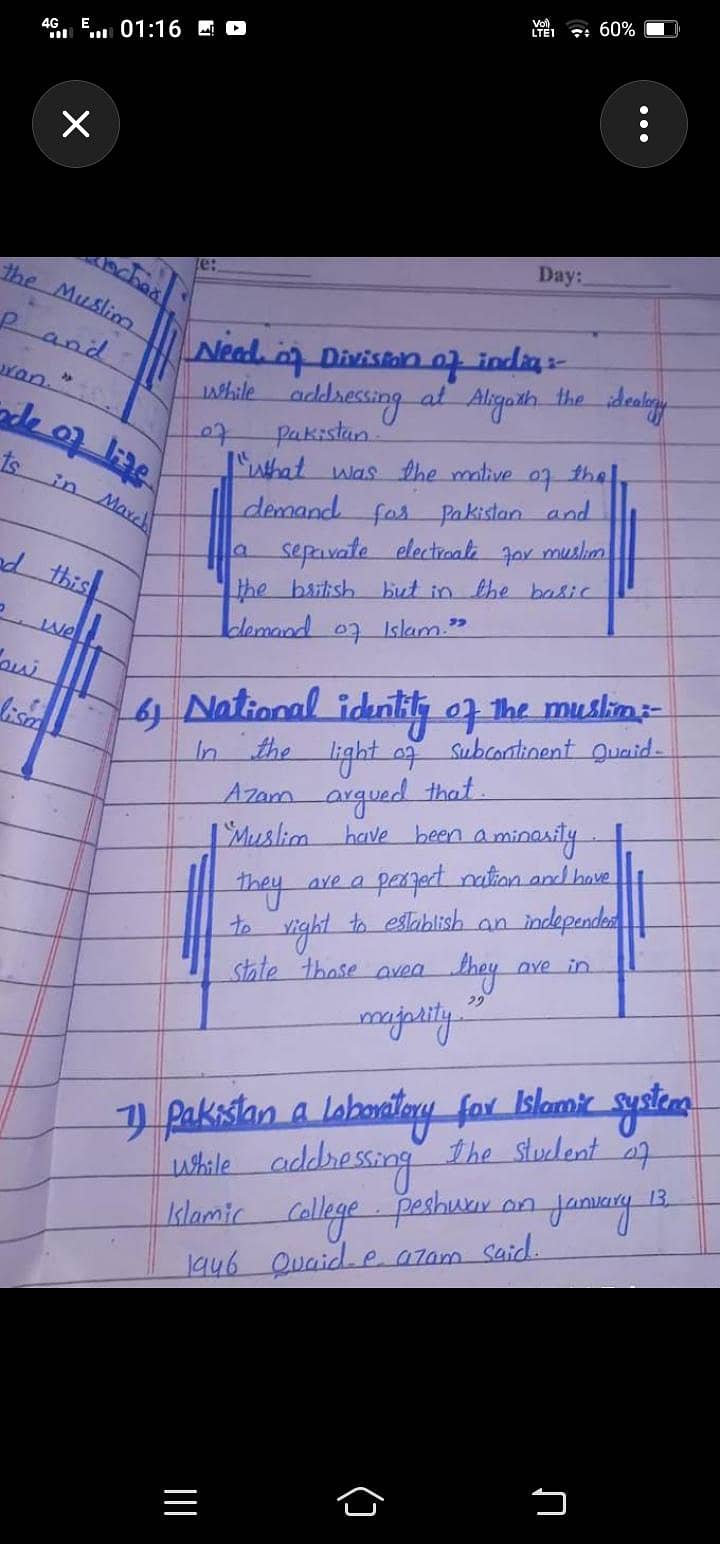 4G E 01:16 Vo) LTE1 60%
the Muslim
P and
ran."
ode of life
ts in March
d this
we
lism
e: Day:
Need of Division of india :-
while addressing at Aligarh the idealogy
of Pakistan.
"What was the motive of the
demand for Pakistan and
a separate electroate for muslim
the british but in the basic
demand of Islam."
6) National identity of the muslim :-
In the light of Subcontinent Quaid-
Azam argued that.
"Muslim have been a minority.
they are a perfect nation and have
to right to establish an independent
state those area they are in
majority."
7) Pakistan a Laboratory for Islamic system
While addressing the student of
Islamic College. peshwar on january 13,
1946 Quaid-e-azam said.